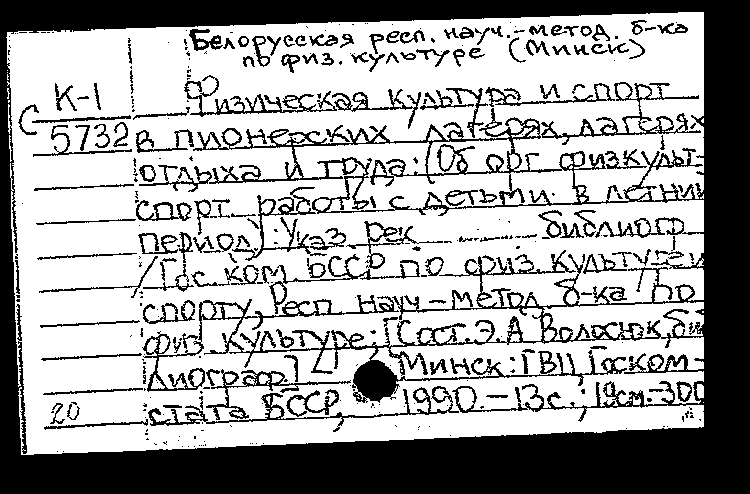 Белорусская респ. науч.-метод. б-ка
по физ. культуре (Минск)
К-1
Физическая культура и спорт
С 5732 в пионерских лагерях, лагерях
отдыха и труда: (Об орг. физкульт-
спорт. работы с детьми в летний
период): Указ. рек. библиогр.
/Гос. ком. БССР по физ. культуре и
спорту, Респ. науч.-метод. б-ка по
физ. культуре; [Сост. Э.А Волосюк, биб
лиограф] Минск: ГВЦ Госком-
20 стата БССР, 1990.-13с.; 19см.-300